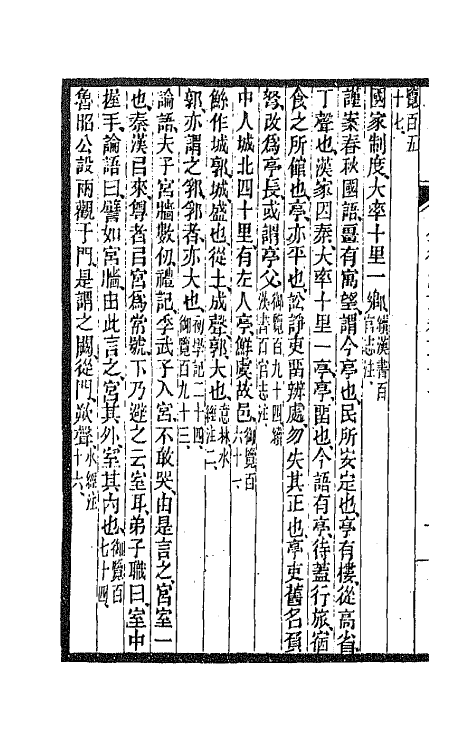 覽百五十七
國家制度大率十里一鄉續漢書百官志注
謹案春秋國語畺有寓望謂今亭也民所安定也亭有樓從高省
丁聲也漢家因秦大率十里一亭亭畱也今語有亭待蓋行旅宿
食之所館也亭亦平也訟諍吏畱辨處勿失其正也亭吏舊名負
弩改為亭長或謂亭父御覽百九十四續漢書百官志注
中人城北四十里有左人亭鮮虞故邑御覽百六十一
鯀作城郭城盛也從土成聲郭大也意林水經注二
郭亦謂之郛郛者亦大也初學記二十四御覽百九十三
論語夫子宮牆數仞禮記季武子入宮不敢哭由是言之宮室一
也秦漢㠯來尊者㠯宮為常號下乃避之云室耳弟子職曰室中
握手論語曰譬如宮牆由此言之宮其外室其內也御覽百七十四
魯昭公設兩觀于門是謂之闕從門欮聲水經注十六